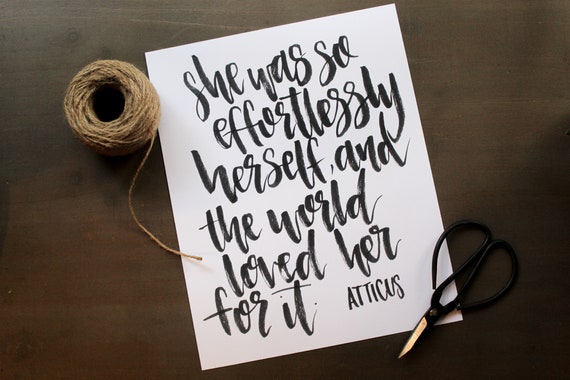 she was so
effortlessly
herself, and
the world
loved her
for it.
ATTICUS